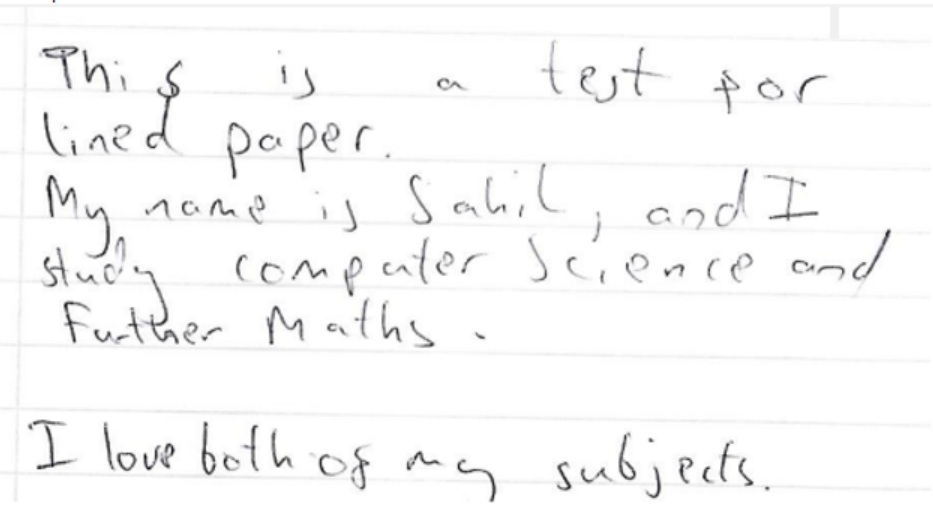 This is a test for
lined paper.
My name is Sahil, and I
study computer Science and
Further Maths.
I love both of my subjects.